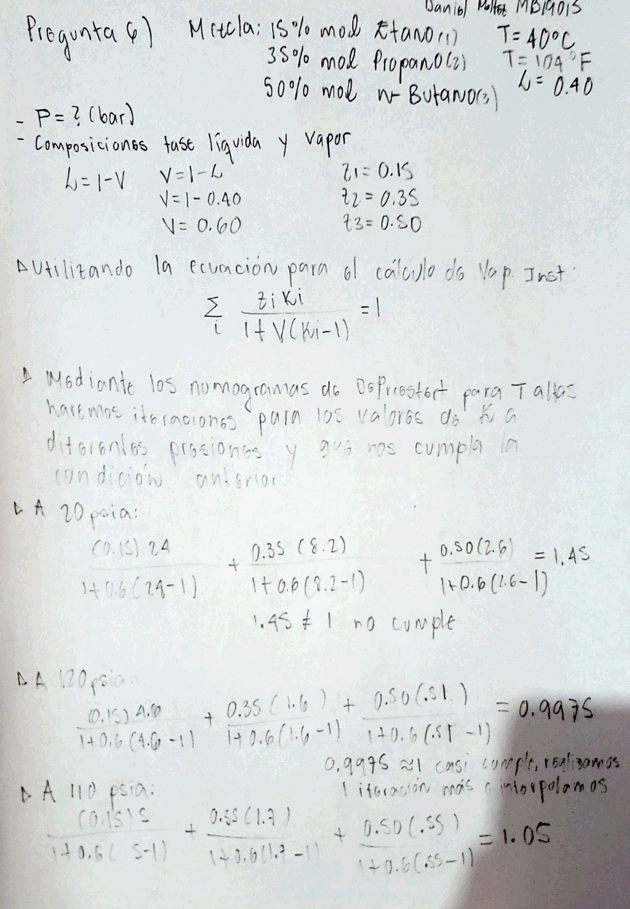 Daniel MB19015
Pregunta 6) Mezcla: 15% mol Etano(1) T=40°C
35% mol Propano(2) T=104°F
50% mol n-Butano(3) L=0.40
- P=? (bar)
- Composiciones fase líquida y vapor
L=1-V V=1-L z1=0.15
V=1-0.40 z2=0.35
V=0.60 z3=0.50
Utilizando la ecuación para el cálculo de Vap. Inst:
Σi ziKi / 1+V(Ki-1) =1
Mediante los nomogramas de DePriestert para T altas
haremos iteraciones para los valores de K a
diferentes presiones y que nos cumpla la
condición anterior
A 20 psia:
(0.15)24 / 1+0.6(24-1) + 0.35(8.2) / 1+0.6(8.2-1) + 0.50(2.6) / 1+0.6(2.6-1) = 1.45
1.45 ≠ 1 no cumple
A 120 psia:
(0.15)4.6 / 1+0.6(4.6-1) + 0.35(1.6) / 1+0.6(1.6-1) + 0.50(.51) / 1+0.6(.51-1) = 0.9975
0.9975 ≈ 1 casi cumple, realizamos
1 iteración más e interpolamos
A 110 psia:
(0.15)5 / 1+0.6(5-1) + 0.35(1.7) / 1+0.6(1.7-1) + 0.50(.55) / 1+0.6(.55-1) = 1.05